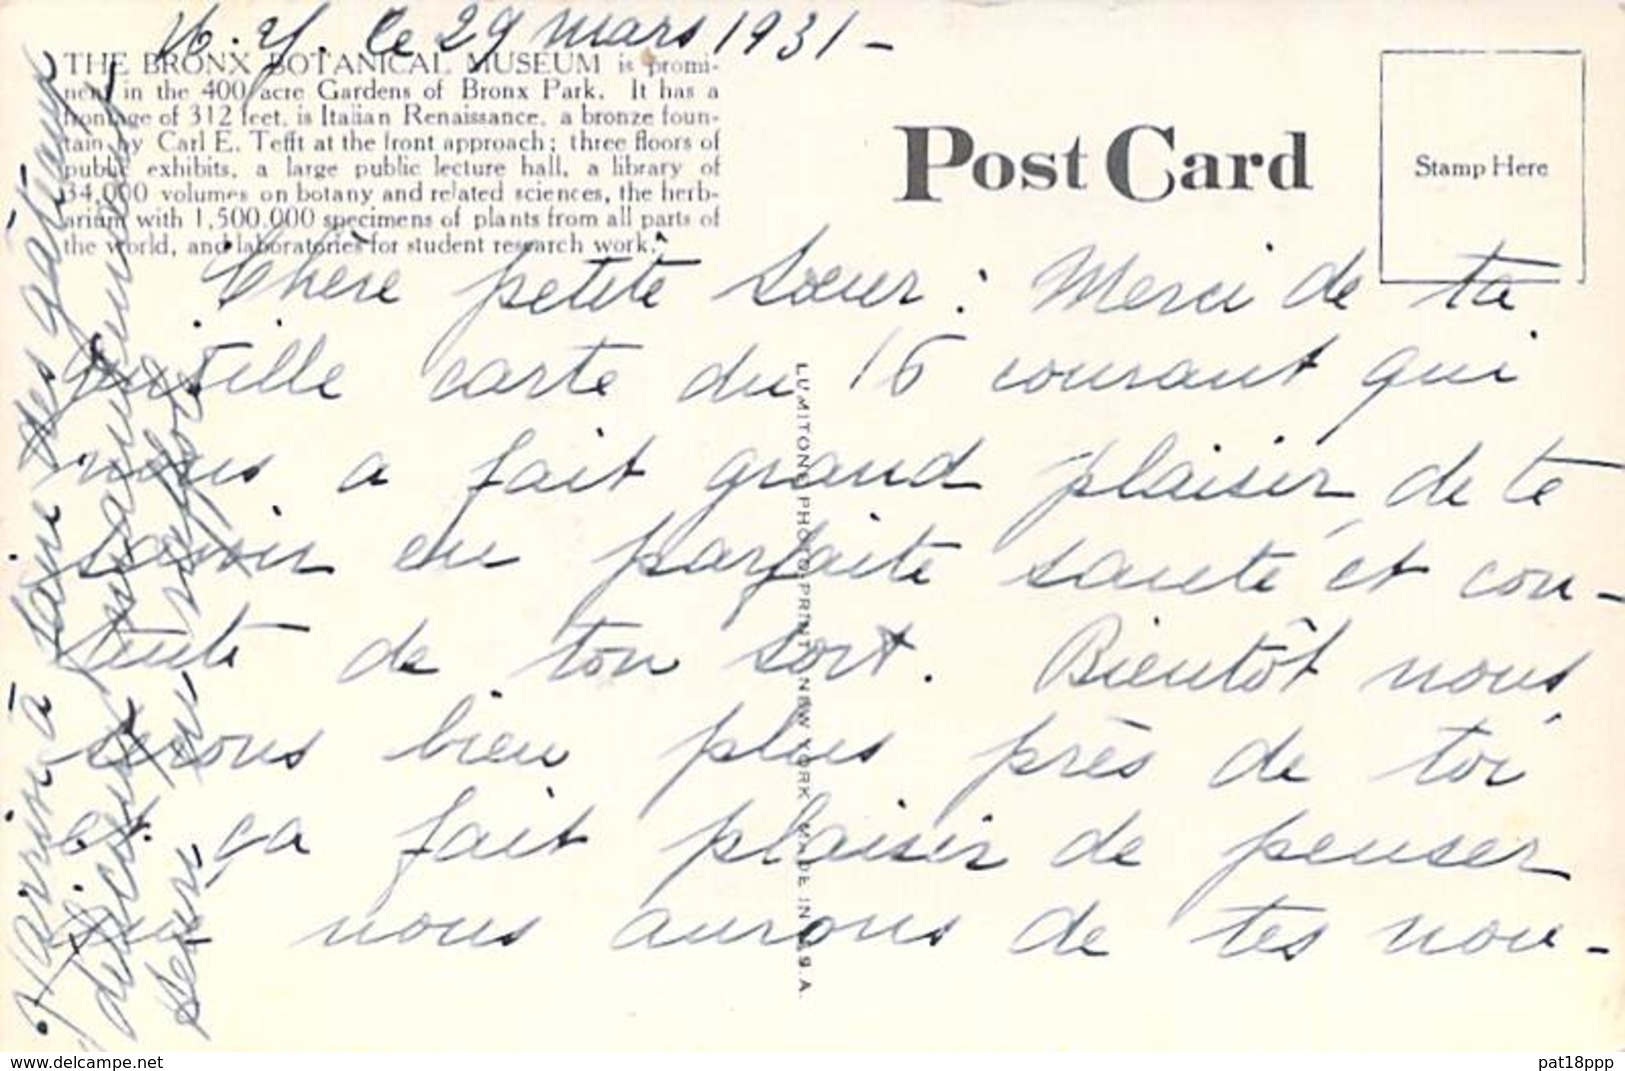 N.Y. le 29 mars 1931 -
THE BRONX BOTANICAL MUSEUM is promi-
nent in the 400 acre Gardens of Bronx Park. It has a
frontage of 312 feet, is Italian Renaissance, a bronze foun-
tain by Carl E. Tefft at the front approach; three floors of
public exhibits, a large public lecture hall, a library of
34,000 volumes on botany and related sciences, the herb-
arium with 1,500,000 specimens of plants from all parts of
the world, and laboratories for student research work.
Post Card
Stamp Here
Chère petite Sœur : Merci de ta
gentille carte du 16 courant qui
nous a fait grand plaisir, de te
savoir en parfaite santé et con-
tente de ton sort. Bientôt nous
serons bien plus près de toi
et ça fait plaisir de penser
que nous aurons de tes nou-
LUMITONE PHOTOPRINT NEW YORK MADE IN U.S.A.
à faire des gâteaux
delicbe-shop.com
pat18ppp